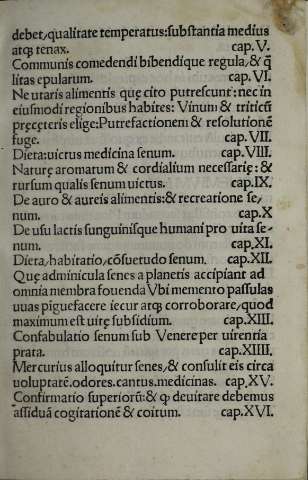 debet, qualitate temperatus: substantia medius
atq; tenax. cap.V.
Communis comedendi bibendique regula, & q̄
litas epularum. cap.VI.
Ne utaris alimentis quę cito putrescunt: nec in
eiusmodi regionibus habites: Vinum & triticū
pręceteris elige: Putrefactionem & resolutionē
fuge. cap.VII.
Dieta: uictus medicina senum. cap.VIII.
Naturę aromatum & cordialium necessarię: &
rursum qualis senum uictus. cap.IX.
De auro & aureis alimentis: & recreatione se,
num. cap.X
De usu lactis sanguinisque humani pro uita se-
num. cap.XI.
Dieta, habitatio, cōsuetudo senum. cap.XII.
Quę adminicula senes a planetis accipiant ad
omnia membra fouenda Vbi memento passulas
uuas piguefacere iecur atq; corroborare, quod
maximum est uitę subsidium. cap.XIII.
Confabulatio senum sub Venere per uirentia
prata. cap.XIIII.
Mercurius alloquitur senes, & consulit eis circa
uoluptatē. odores. cantus. medicinas. cap,XV.
Confirmatio superiorū: & q; deuitare debemus
assiduā cogitationē & coitum. cap.XVI.